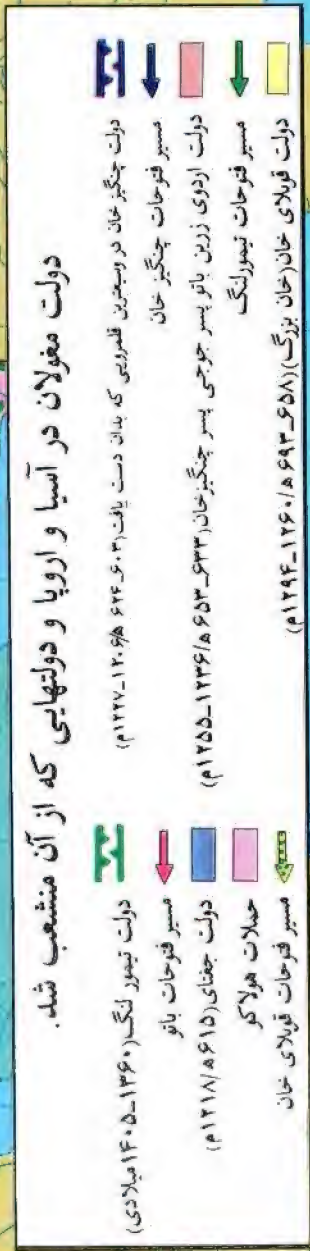 دولت مغولان در آسیا و اروپا و دولتهایی که از آن منشعب شد.
دولت چنگیز خان در وسیعترین قلمرویی که بدان دست یافت(۶۰۳_۶۲۴ ه/۱۲۰۶_۱۲۲۷م)
مسیر فتوحات چنگیز خان
دولت اردوی زرین باتو پسر جوجی پسر چنگیزخان(۶۳۳_۶۵۳ ه/۱۲۳۶_۱۲۵۵م)
مسیر فتوحات تیمورلنگ
دولت قوبلای خان(خان بزرگ)(۶۵۸_۶۹۳ ه/۱۲۶۰_۱۲۹۴م)
دولت تیمور لنگ(۱۳۶۰_۱۴۰۵ میلادی)
مسیر فتوحات باتو
دولت جغتای(۶۱۵ ه/۱۲۱۸م)
حملات هولاکو
مسیر فتوحات قوبلای خان